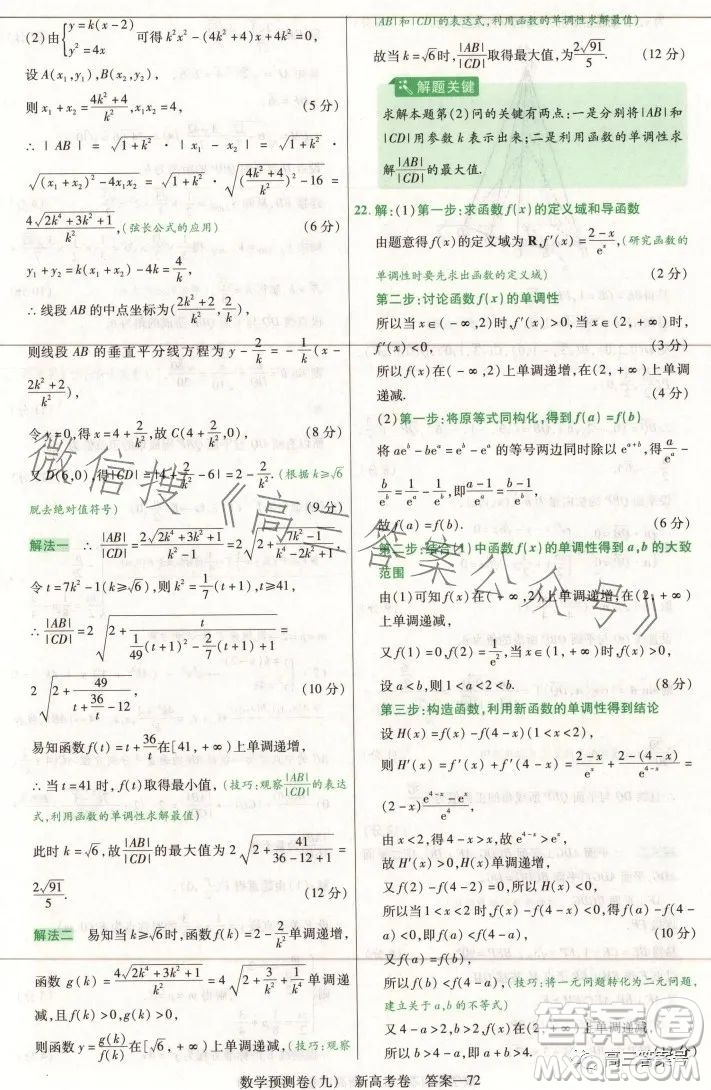 (2)由{y=k(x-2) y²=4x 可得k²x²-(4k²+4)x+4k²=0,
设A(x₁,y₁),B(x₂,y₂),
则x₁+x₂=(4k²+4)/k²,x₁x₂=4, (5分)
∴|AB|=√(1+k²)·|x₁-x₂|=√(1+k²)·
√((x₁+x₂)²-4x₁x₂)=√(1+k²)·√(((4k²+4)/k²)²-16)=
4√(2k⁴+3k²+1)/k², (弦长公式的应用) (6分)
y₁+y₂=k(x₁+x₂)-4k=4/k,
∴线段AB的中点坐标为((2k²+2)/k²,2/k),
则线段AB的垂直平分线方程为y-2/k=-1/k(x-
(2k²+2)/k²),
令y=0,得x=4+2/k²,故C(4+2/k²,0), (8分)
又D(6,0),得|CD|=|4+2/k²-6|=2-2/k².(根据k≥√6
脱去绝对值符号) (9分)
解法一 ∴|AB|/|CD|=2√(2k⁴+3k²+1)/(k²-1)=2√(2+(7k²-1)/(k⁴-2k²+1)),
令t=7k²-1(k≥√6),则k²=1/7(t+1),t≥41,
∴|AB|/|CD|=2√(2+t/(1/49(t+1)²-2/7(t+1)+1))=
2√(2+49/(t+36... /t-12)), (10分)
易知函数f(t)=t+36/t在[41,+∞)上单调递增,
∴当t=41时,f(t)取得最小值,(技巧:观察|AB|/|CD|的表达
式,利用函数的单调性求解最值)
此时k=√6,故|AB|/|CD|的最大值为2√(2+41/(36-12+1))=
2√91/5. (12分)
解法二 易知当k≥√6时,函数f(k)=2-2/k²单调递增,
函数g(k)=4√(2k⁴+3k²+1)/k²=4√(2+3/k²+1/k⁴)单调递
减,且f(k)>0,g(k)>0,
则函数y=g(k)/f(k)在[√6,+∞)上单调递减,(技巧:观察
|AB|和|CD|的表达式,利用函数的单调性求解最值)
故当k=√6时,|AB|/|CD|取得最大值,为2√91/5. (12分)
解题关键
求解本题第(2)问的关键有两点:一是分别将|AB|和
|CD|用参数k表示出来;二是利用函数的单调性求
解|AB|/|CD|的最大值.
22.解:(1)第一步:求函数f(x)的定义域和导函数
由题意得f(x)的定义域为R,f'(x)=(2-x)/eˣ,(研究函数的
单调性时要先求出函数的定义域) (2分)
第二步:讨论函数f(x)的单调性
所以当x∈(-∞,2)时,f'(x)>0,当x∈(2,+∞)时,
f'(x)<0, (3分)
所以f(x)在(-∞,2)上单调递增,在(2,+∞)上单调
递减. (4分)
(2)第一步:将原等式同构化,得到f(a)=f(b)
将aeᵇ-beᵃ=eᵇ-eᵃ的等号两边同时除以eᵃ⁺ᵇ,得a/eᵃ-
b/eᵇ=1/eᵃ-1/eᵇ,即(a-1)/eᵃ=(b-1)/eᵇ,
故f(a)=f(b). (6分)
第二步:结合(1)中函数f(x)的单调性得到a,b的大致
范围
由(1)可知f(x)在(-∞,2)上单调递增,在(2,+∞)上
单调递减,
又f(1)=0,f(2)=1/e²,当x>1时,f(x)>0,
设a<b,则1<a<2<b. (8分)
第三步:构造函数,利用新函数的单调性得到结论
设H(x)=f(x)-f(4-x)(1<x<2),
则H'(x)=f'(x)+f'(4-x)=(2-x)/eˣ+(2-(4-x))/e⁴⁻ˣ=
(2-x)(e⁴⁻ˣ-eˣ)/e⁴,
由x<2,得4-x>2>x,故e⁴⁻ˣ>eˣ,
故H'(x)>0,H(x)单调递增,
又f(2)-f(4-2)=0,所以H(x)<0,
所以当1<x<2时,f(x)<f(4-x), (10分)
所以f(a)<f(4-a),
又f(a)=f(b),
所以f(b)<f(4-a),(技巧:将一元问题转化为二元问题,
建立关于a,b的不等式)
又4-a>2,b>2,f(x)在(2,+∞)上单调递减,
所以b>4-a,故a+b>4.
微信搜《高三答案公众号》
答案卷
高三答案号
数学预测卷(九) 新高考卷 答案—72